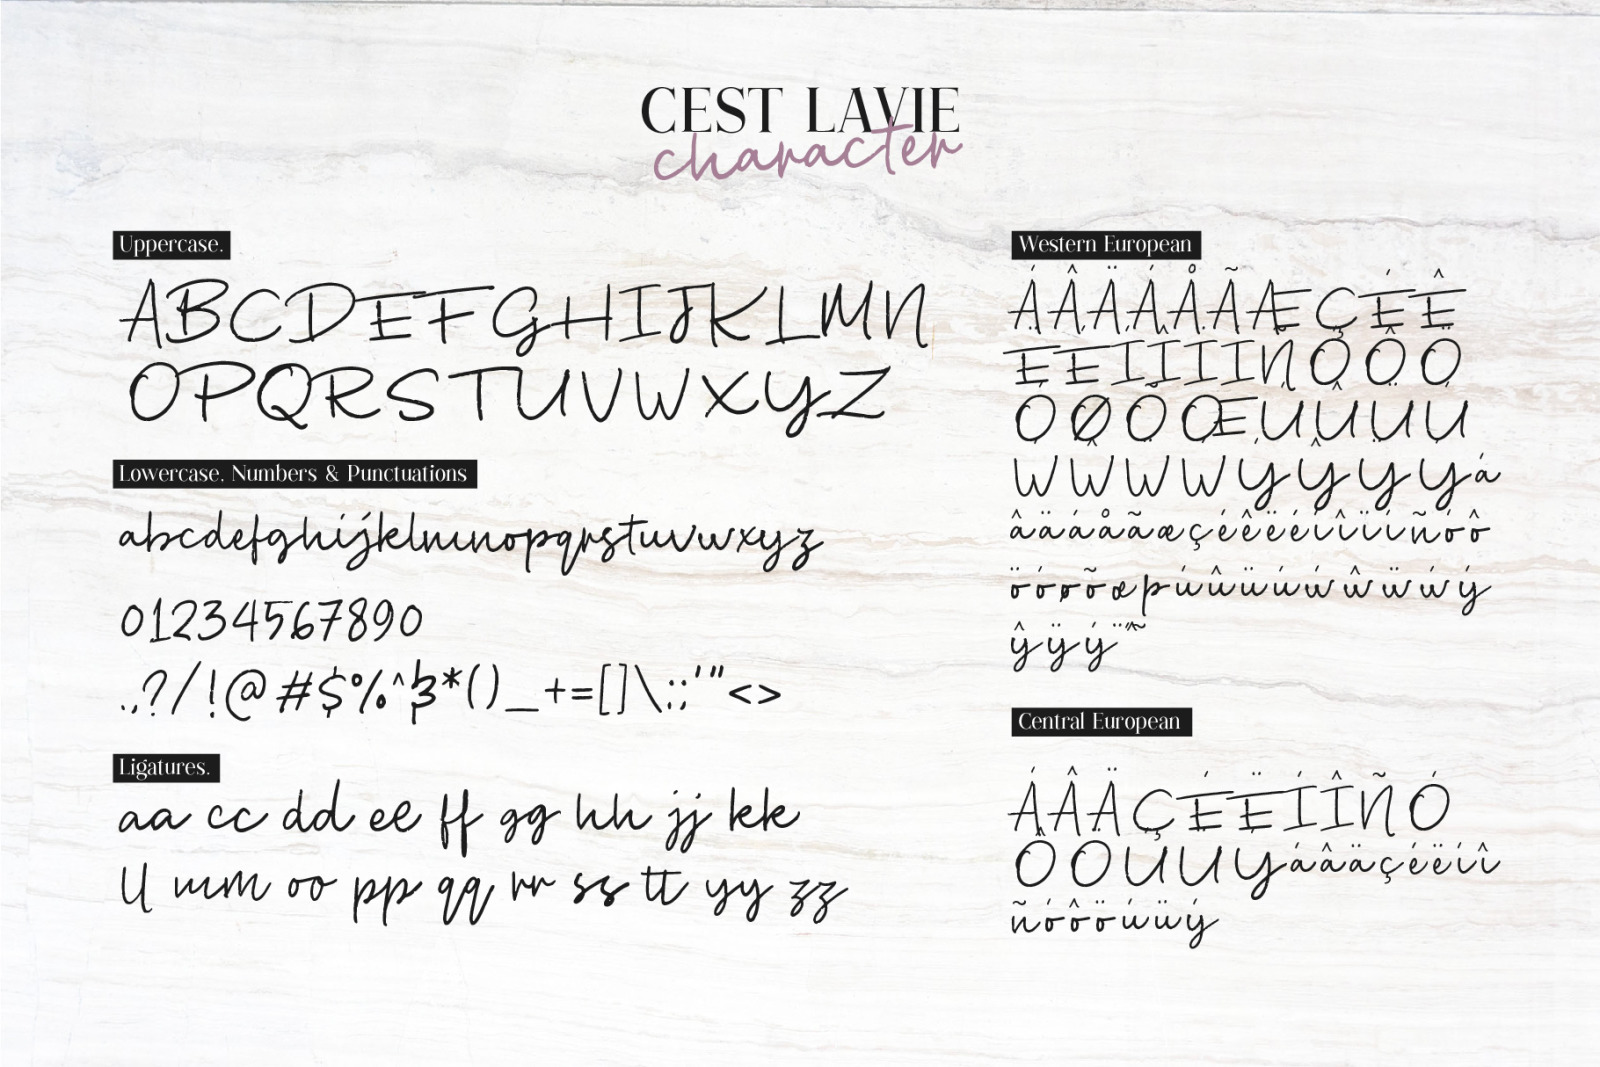 CEST LAVIE
character
Uppercase.
ABCDEFGHIJKLMN
OPQRSTUVWXYZ
Lowercase, Numbers & Punctuations
abcdefghijklmnopqrstuvwxyz
01234567890
.,?/!@#$%^&*()_+=[]\:;'"<>
Ligatures.
aa cc dd ee ff gg hh jj kk
ll mm oo pp qq rr ss tt yy zz
Western European
ÁÂÄÀÅÃÆÇÉÊ
ËÈÍÎÏÌÑÓÔÖ
ÒØÕŒÚÛÜÙ
ẂŴẄẀÝŶŸỲá
âäàåãæçéêëèíîïìñóô
öòøõœþúûüùẃŵẅẁý
ŷÿỳ¨˝˜
Central European
ÁÂÄÇÉËÍÎÑÓ
ÔÖÚÜÝáâäçéëíî
ñóôöúüý